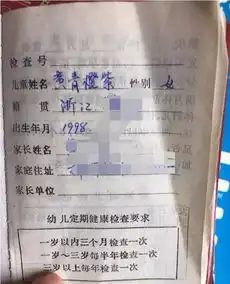 检查号
儿童姓名 黄青橙紫 性别 女
籍 贯 浙江
出生年月 1998
家长姓名
家庭住址
家长单位
幼儿定期健康检查要求
一岁以内三个月检查一次
一岁～三岁每半年检查一次
三岁以上每年检查一次